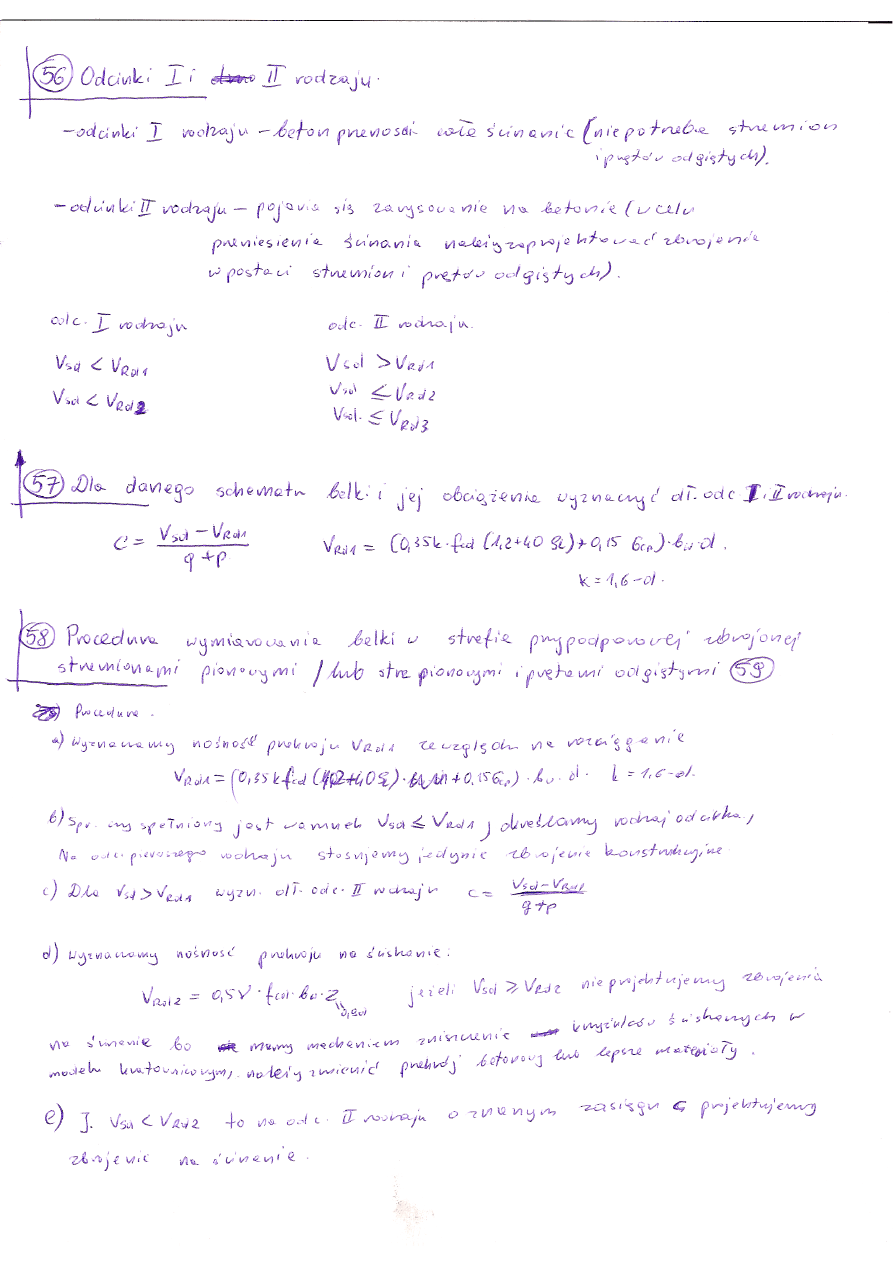 56 Odcinki I i II rodzaju.
- odcinki I rodzaju - beton przenosi całe ścinanie (niepotrzeba strzemion
i prętów odgiętych).
- odcinki II rodzaju - pojawia się zarysowanie na betonie (w celu
przeniesienia ścinania należy zaprojektować zbrojenie
w postaci strzemion i prętów odgiętych).
odc. I rodzaju odc. II rodzaju.
Vsd < VRd1 Vsd > VRd1
Vsd < VRd2 Vsd ≤ VRd2
Vsd. ≤ VRd3
57 Dla danego schematu belki i jej obciążenia wyznaczyć dł. odc I i II rodzaju.
C = (Vsd - VRd1) / (q + p) VRd1 = (0,35k·fcd (1,2+40 ρl)+0,15 σcp)·bw·d.
k=1,6-d.
58 Procedura wymiarowania belki w strefie przypodporowej zbrojonej
strzemionami pionowymi / lub strz pionowymi i prętami odgiętymi 59
Procedura.
a) Wyznaczamy nośność przekroju VRd1 ze względu na rozciąganie
VRd1 = (0,35kfcd (1,2+40ρl) +0,15σcp)·bw·d. k=1,6-d.
b) Spr. czy spełniony jest warunek Vsd ≤ VRd1, określamy rodzaj odcinka,
Na odc. pierwszego rodzaju stosujemy jedynie zbrojenie konstrukcyjne.
c) Dla Vsd > VRd1 wyzn. dł. odc. II rodzaju c = (Vsd-VRd1) / (q+p)
d) Wyznaczamy nośność przekroju na ściskanie:
VRd2 = 0,5ν·fcd·bw·z jeżeli Vsd ≥ VRd2 nie projektujemy zbrojenia
0,9d
na ścinanie bo mamy mechanizm zniszczenia krzyżulców ściskanych w
modelu kratownicowym, należy zmienić przekrój betonowy lub lepsze materiały.
e) J. Vsd < VRd2 to na odc. II rodzaju o znanym zasięgu c projektujemy
zbrojenie na ścinanie.